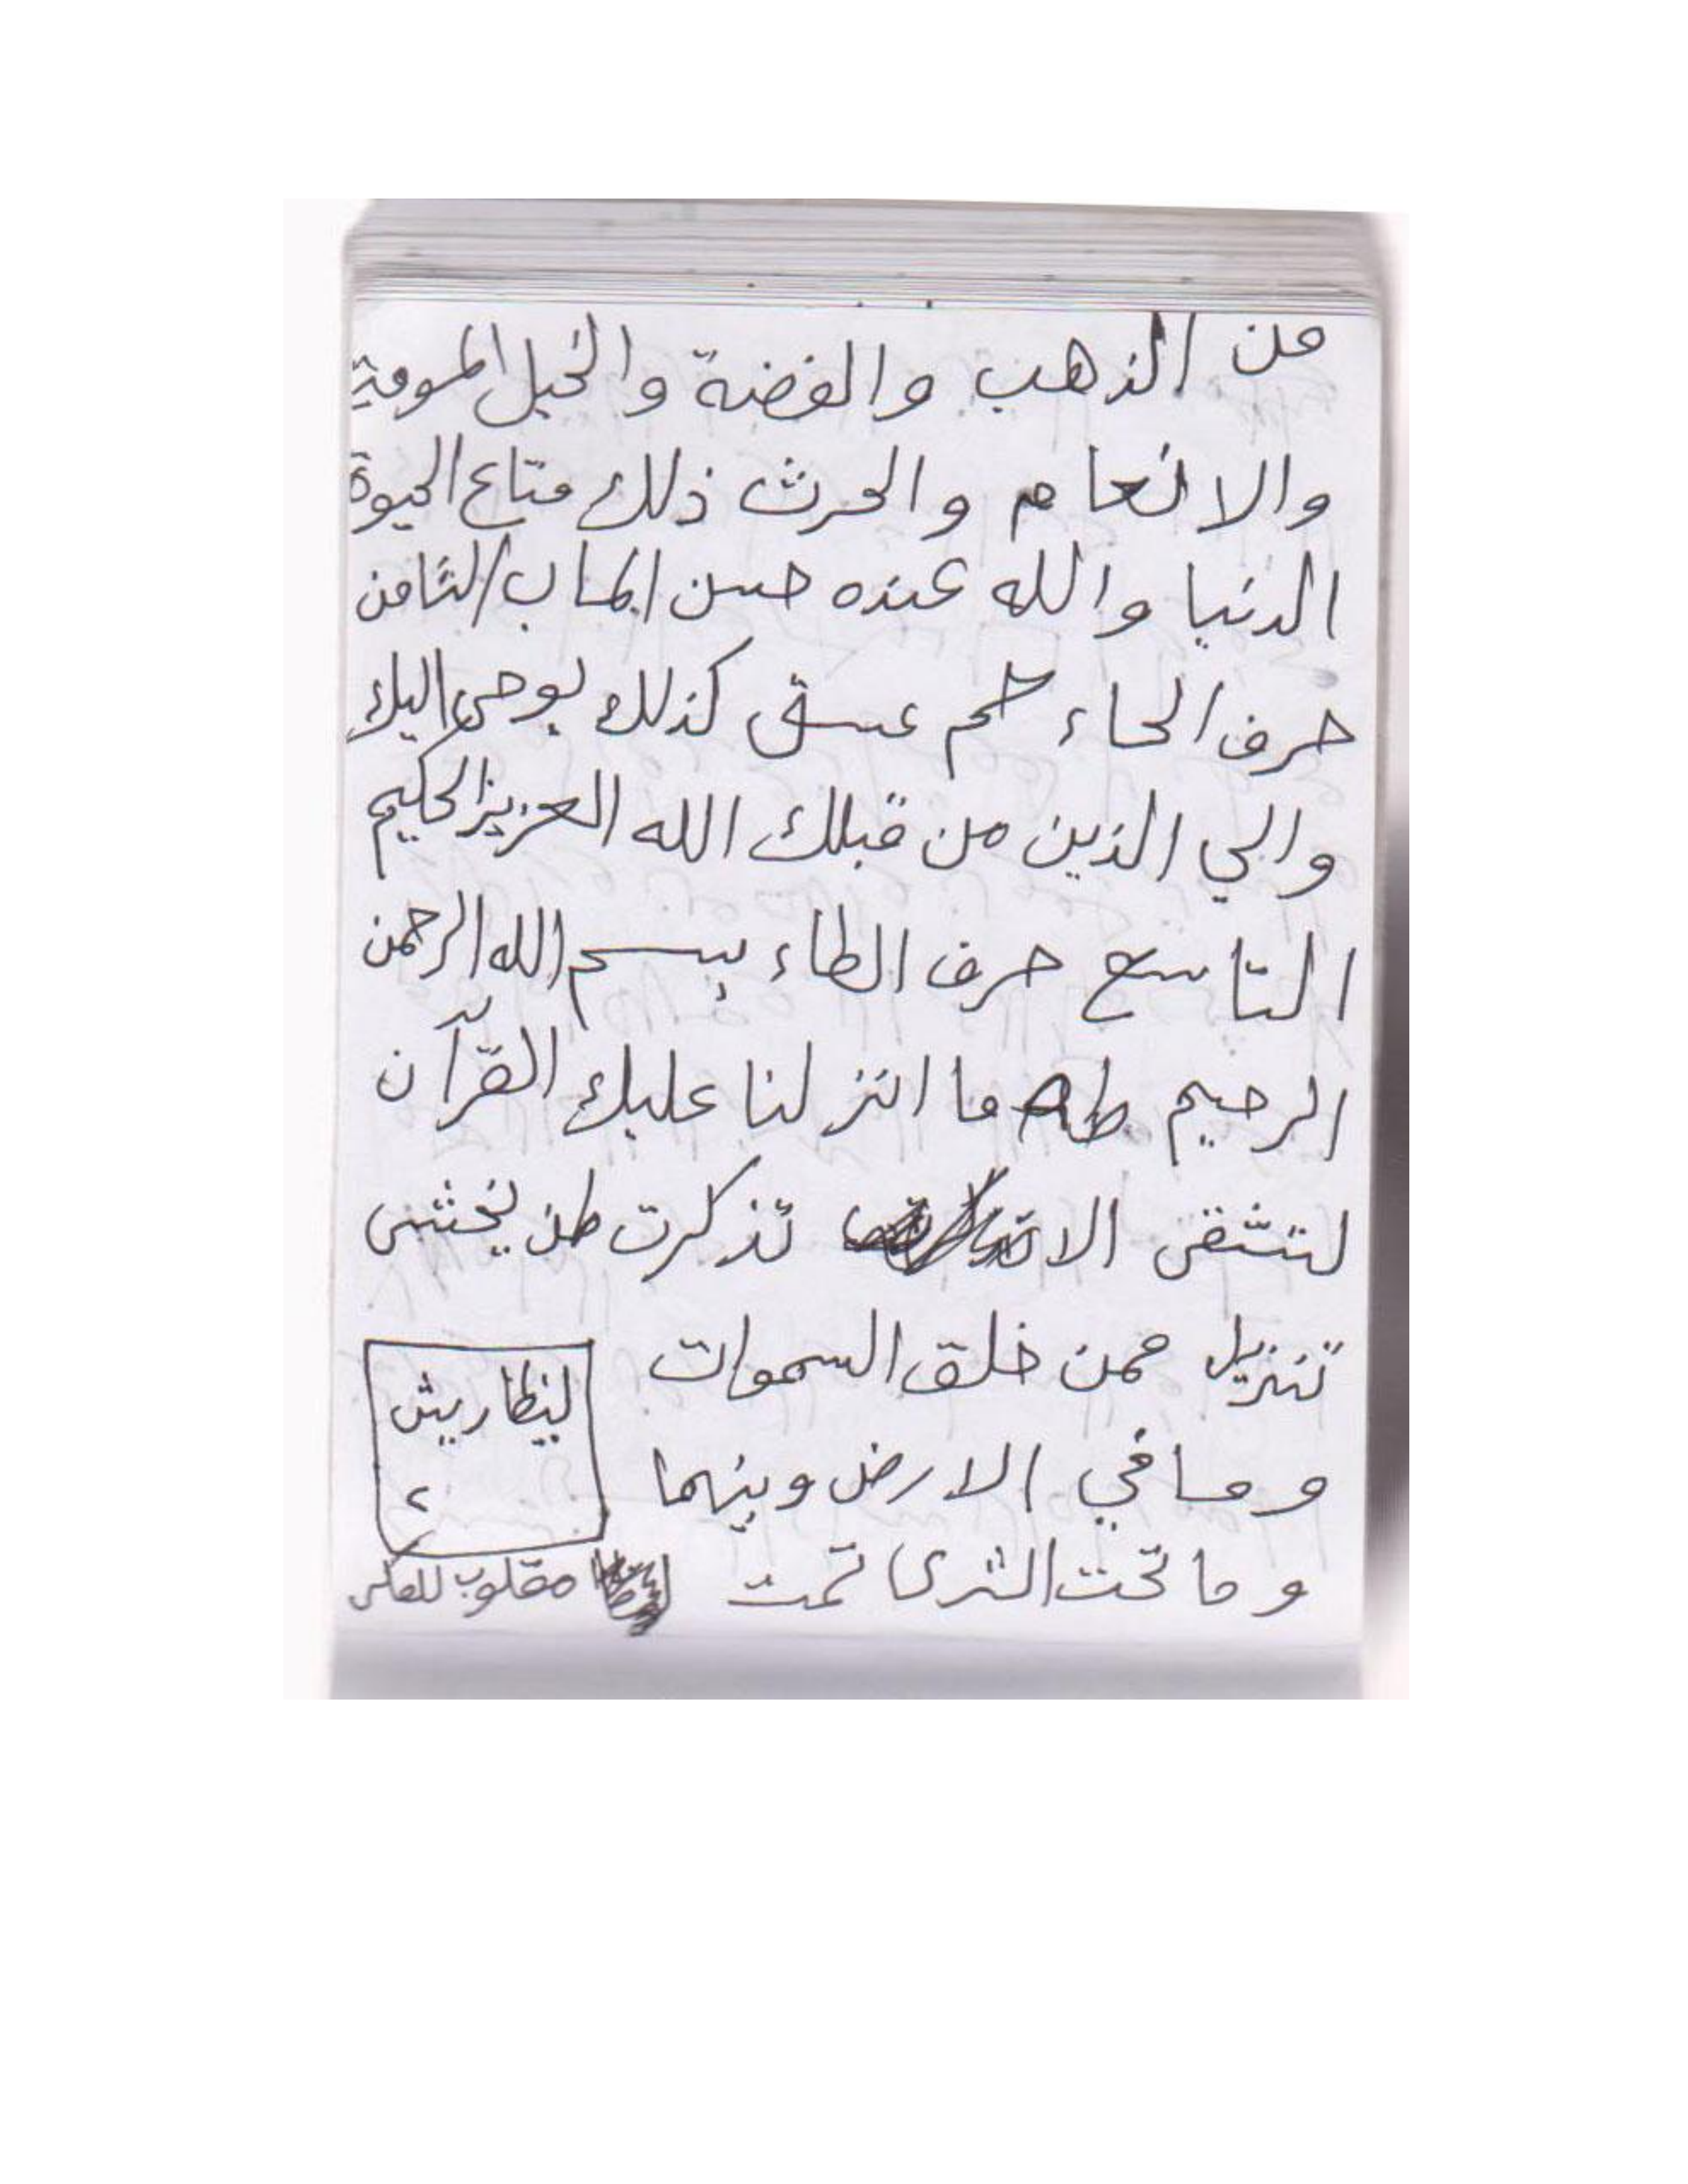 من الذهب والفضة والخيل المسومة
والانعام والحرث ذلك متاع الحيوة
الدنيا والله عنده حسن الماب الثامن
حرف الحاء حم عسق كذلك يوحى اليك
والي الذين من قبلك الله العزيز الحكيم
التاسع حرف الطاء بسم الله الرحمن
الرحيم طه ما انزلنا عليك القرآن
لتشقى الا تذكرت لمن يخشى
تنزيل ممن خلق السموات
وما في الارض وبينهما
وما تحت الثرى تمت
ليظاريش
٢
مقلوب